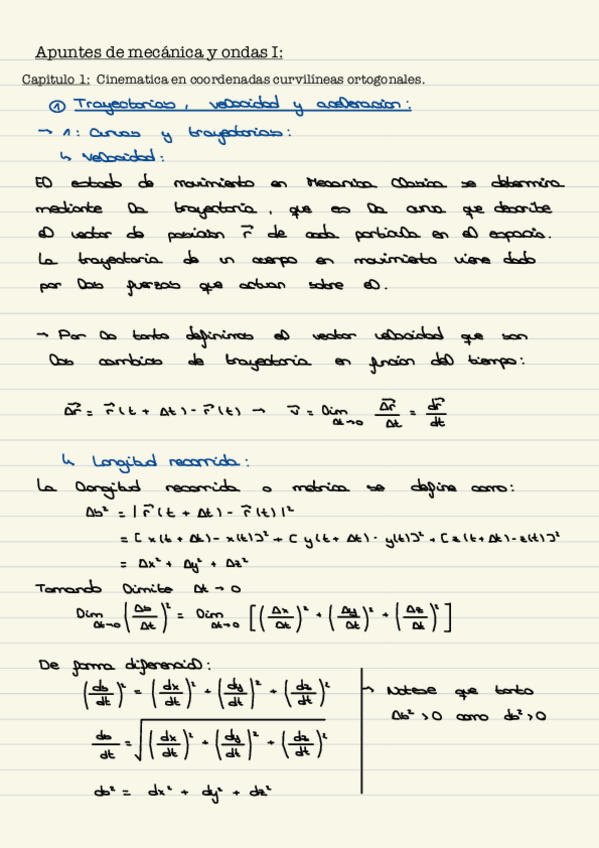 Apuntes de mecánica y ondas I:
Capitulo 1: Cinematica en coordenadas curvilíneas ortogonales.
① Trayectorias, velocidad y aceleracion:
→ 1: Curvas y trayectorias:
↳ Velocidad:
El estado de movimiento en Mecanica Clasica se determina
mediante la trayectoria, que es la curva que describe
el vector de posicion r⃗ de cada particula en el espacio.
La trayectoria de un cuerpo en movimiento viene dado
por las fuerzas que actuan sobre el.
→ Por lo tanto definimos el vector velocidad que son
los cambios de trayectoria en funcion del tiempo:
Δr⃗ = r⃗(t + Δt) - r⃗(t) → v⃗ = lim Δt→0 Δr⃗/Δt = dr⃗/dt
↳ Longitud recorrida:
La longitud recorrida o metrica se define como:
Δs² = |r⃗(t + Δt) - r⃗(t)|²
= [x(t + Δt) - x(t)]² + [y(t + Δt) - y(t)]² + [z(t + Δt) - z(t)]²
= Δx² + Δy² + Δz²
Tomando limite Δt → 0
lim Δt→0 (Δs/Δt)² = lim Δt→0 [(Δx/Δt)² + (Δy/Δt)² + (Δz/Δt)²]
De forma diferencial:
(ds/dt)² = (dx/dt)² + (dy/dt)² + (dz/dt)²
→ Notese que tanto
Δs² > 0 como ds² > 0
ds/dt = √((dx/dt)² + (dy/dt)² + (dz/dt)²)
ds² = dx² + dy² + dz²